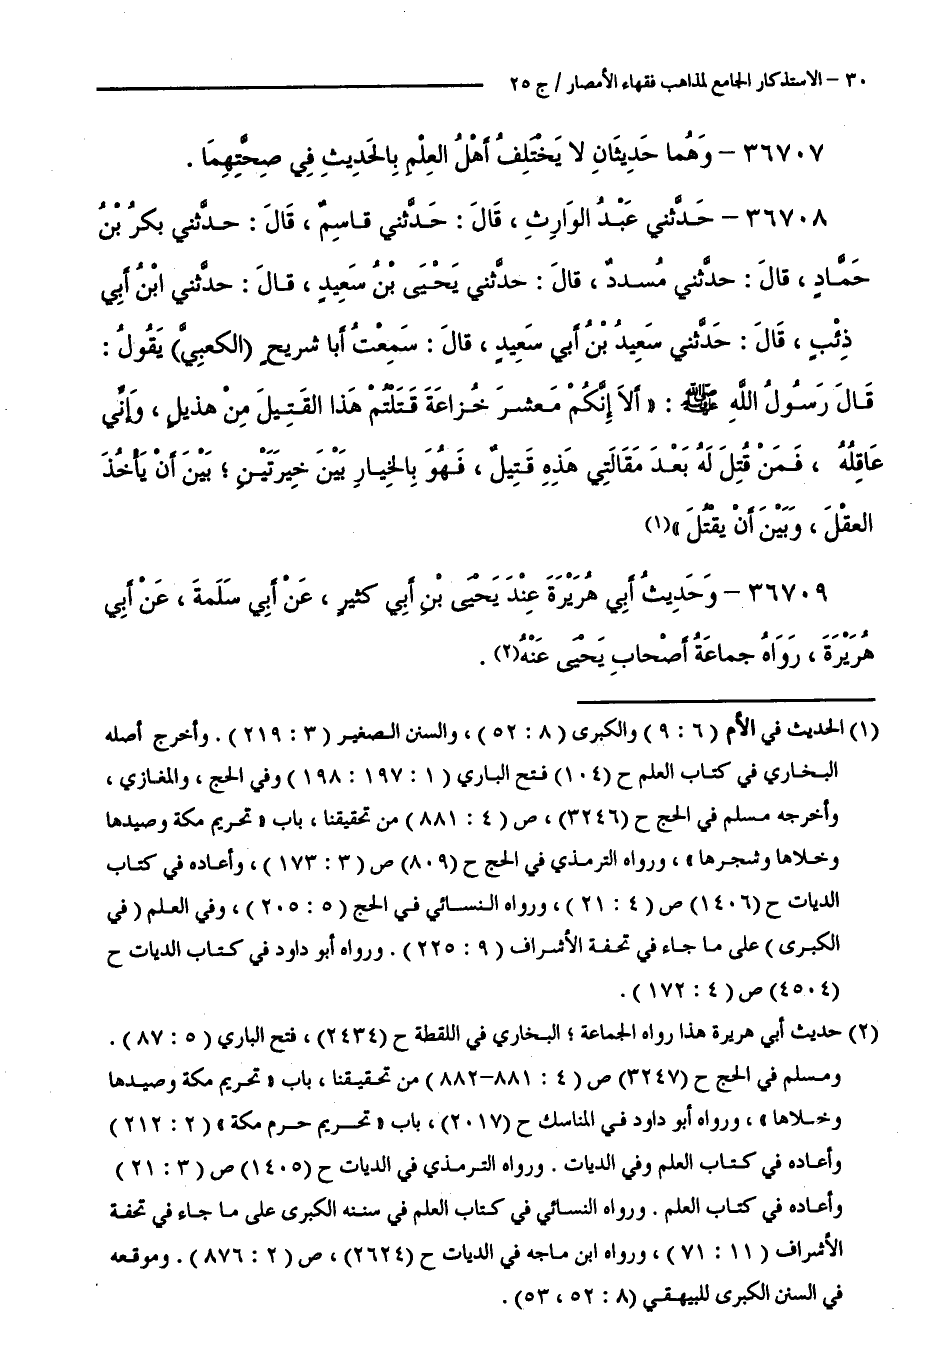 ٣٠ – الاستذكار الجامع لمذاهب فقهاء الأمصار / ج ٢٥
٣٦٧٠٧ – وَهُما حَدِيثَانِ لا يَخْتَلِفُ أَهْلُ العِلْمِ بِالحَدِيثِ فِي صِحَّتِهِمَا .
٣٦٧٠٨ – حَدَّثني عَبْدُ الوَارِثِ ، قَالَ : حَدَّثني قَاسِمٌ ، قَالَ : حدَّثني بكرُ بْنُ
حَمَّادٍ ، قالَ : حدثَّني مُسددٌ ، قالَ : حدَّثني يَحْيَى بْنُ سَعِيدٍ ، قالَ : حدثَّني ابْنُ أَبِي
ذِئْبٍ ، قَالَ : حَدَّثني سَعِيدُ بْنُ أَبي سَعِيدٍ ، قالَ : سَمِعْتُ أَبا شريحٍ (الكعبيَّ) يَقُولُ :
قَالَ رَسُولُ اللَّهِ ﷺ : « أَلاَ إِنَّكُمْ مَعشرَ خُزاعَةَ قَتَلْتُمْ هَذا القَتِيلَ مِنْ هذيلٍ ، وَإِنِّي
عَاقِلُهُ ، فَمَنْ قُتِلَ لَهُ بَعْدَ مَقَالَتِي هَذِهِ قَتِيلٌ ، فَهُوَ بِالخِيارِ بَيْنَ خيرَتَيْنِ ؛ بَيْنَ أَنْ يَأْخُذَ
العقْلَ ، وَبَيْنَ أَنْ يقْتُلَ »(١)
٣٦٧٠٩ – وَحَدِيثُ أَبِي هُرَيْرَةَ عِنْدَ يَحْيَى بْنِ أَبِي كثيرٍ ، عَنْ أَبِي سَلَمةَ ، عَنْ أَبِي
هُرَيْرَةَ ، رَوَاهُ جماعَةُ أَصْحابِ يَحْيَى عَنْهُ(٢) .
(١) الحديث في الأم ( ٦ : ٩ ) والكبرى ( ٨ : ٥٢ ) ، والسنن الصغير ( ٣ : ٢١٩ ) . وأخرج أصله
البخاري في كتاب العلم ح (١٠٤) فتح الباري ( ١ : ١٩٧ : ١٩٨ ) وفي الحج ، والمغازي ،
وأخرجه مسلم في الحج ح (٣٢٤٦) ، ص ( ٤ : ٨٨١ ) من تحقيقنا ، باب « تحريم مكة وصيدها
وخلاها وشجرها » ، ورواه الترمذي في الحج ح (٨٠٩) ص ( ٣ : ١٧٣ ) ، وأعاده في كتاب
الديات ح (١٤٠٦) ص ( ٤ : ٢١ ) ، ورواه النسائي في الحج ( ٥ : ٢٠٥ ) ، وفي العلم ( في
الكبرى ) على ما جاء في تحفة الأشراف ( ٩ : ٢٢٥ ) . ورواه أبو داود في كتاب الديات ح
(٤٥٠٤) ص ( ٤ : ١٧٢ ) .
(٢) حديث أبي هريرة هذا رواه الجماعة ؛ البخاري في اللقطة ح (٢٤٣٤) ، فتح الباري ( ٥ : ٨٧ ) .
ومسلم في الحج ح (٣٢٤٧) ص ( ٤ : ٨٨١–٨٨٢ ) من تحقيقنا ، باب « تحريم مكة وصيدها
وخلاها » ، ورواه أبو داود في المناسك ح (٢٠١٧) ، باب « تحريم حرم مكة » ( ٢ : ٢١٢ )
وأعاده في كتاب العلم وفي الديات . ورواه الترمذي في الديات ح (١٤٠٥) ص ( ٣ : ٢١ )
وأعاده في كتاب العلم . ورواه النسائي في كتاب العلم في سننه الكبرى على ما جاء في تحفة
الأشراف ( ١١ : ٧١ ) ، ورواه ابن ماجه في الديات ح (٢٦٢٤) ، ص ( ٢ : ٨٧٦ ) . وموقعه
في السنن الكبرى للبيهقي (٨ : ٥٢ ، ٥٣) .